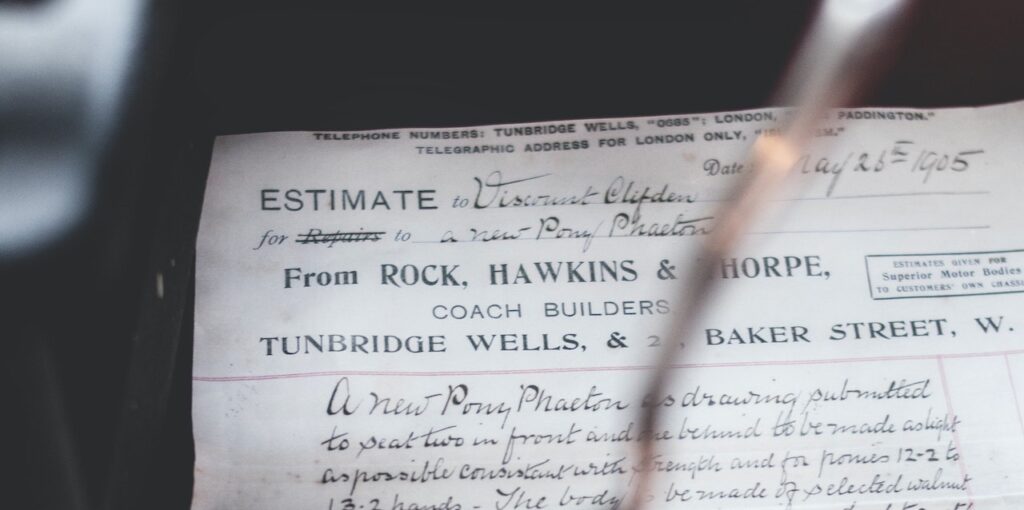 TELEPHONE NUMBERS: TUNBRIDGE WELLS, "0685"; LONDON, PADDINGTON."
TELEGRAPHIC ADDRESS FOR LONDON ONLY,
Date May 25th 1905
ESTIMATE to Viscount Clifden
for Repairs to a new Pony Phaeton
From ROCK, HAWKINS & THORPE,
COACH BUILDERS
ESTIMATES GIVEN FOR
Superior Motor Bodies
TO CUSTOMERS' OWN
TUNBRIDGE WELLS, & BAKER STREET, W.
A new Pony Phaeton as drawing submitted
to seat two in front and one behind to be made as light
as possible consistant with strength and for ponies 12-2 to
13-2 hands - The body be made of selected walnut